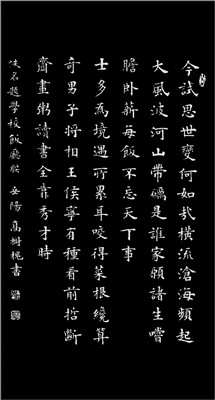 今試思世變何如哉橫流滄海頻起
大風波河山帶礪是誰家願諸生嚐
膽卧薪每飯不忘天下事
士多為境遇所累耳咬得菜根纔算
奇男子將相王侯寧有種看前哲斷
齏畫粥讀書全靠秀才時
佚名題學校飯廳聯 岳陽 高樹桃書